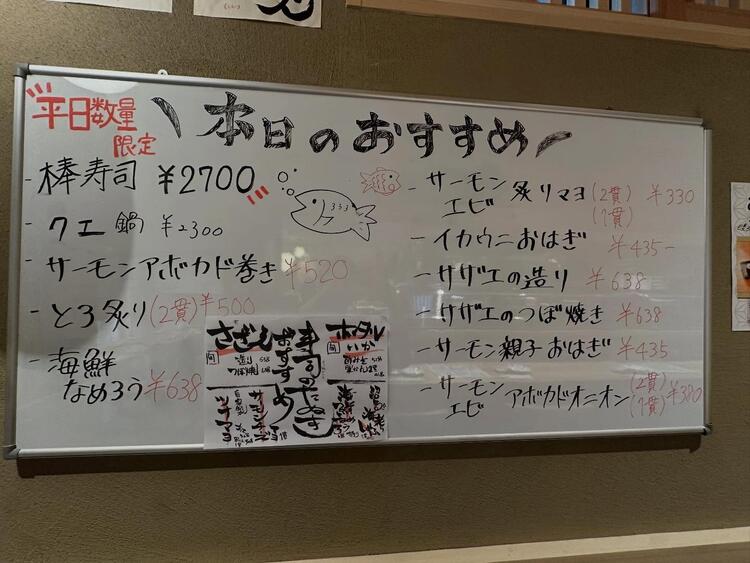 平日数量
限定
本日のおすすめ
- 棒寿司 ¥2700
- クエ鍋 ¥2300
- サーモンアボカド巻き ¥520
- とろ炙り(2貫) ¥500
- 海鮮
なめろう ¥638
- サーモン
エビ 炙りマヨ (2貫) ¥330
(1貫)
- イカウニおはぎ ¥435-
- サザエの造り ¥638
- サザエのつぼ焼き ¥638
- サーモン親子おはぎ ¥435
- サーモン
エビ アボカドオニオン (2貫) ¥380
(1貫)
さざえ
旬
造り
つぼ焼
寿司のたぬき
おすすめ
ホタル
いか
旬
ツナマヨ